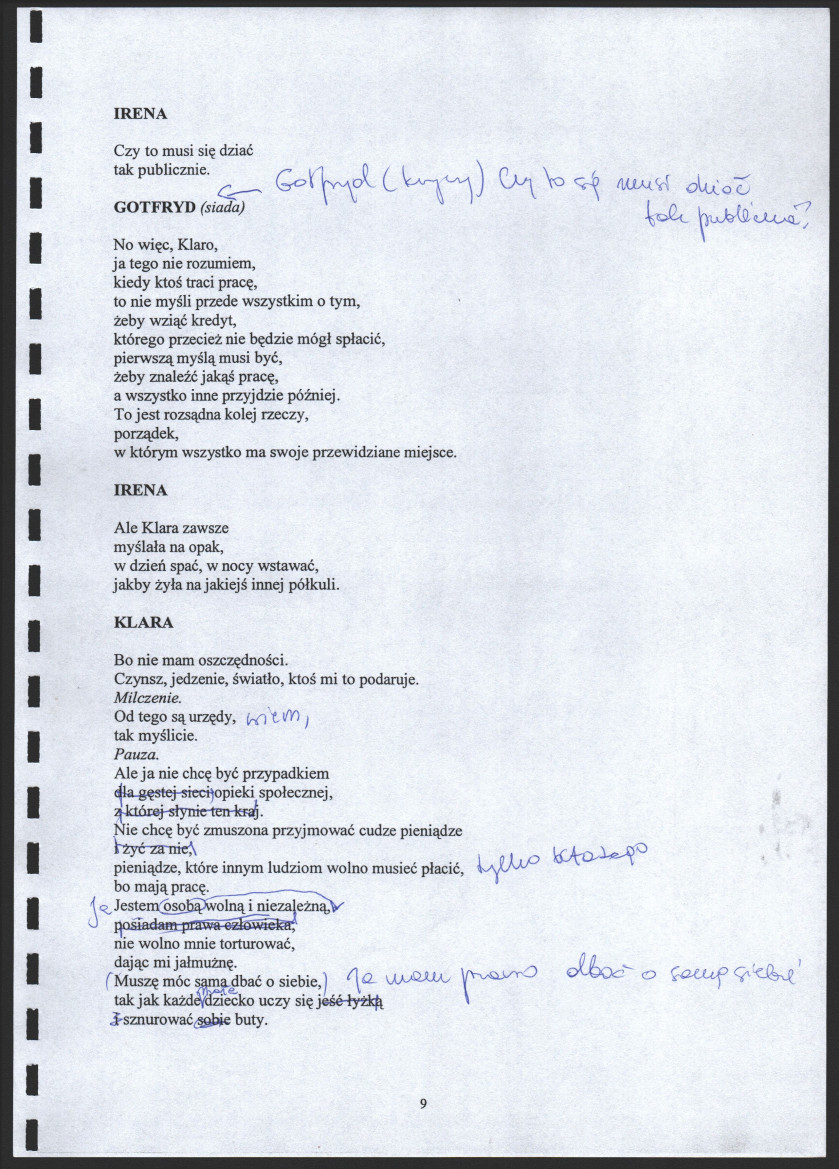 IRENA
Czy to musi się dziać
tak publicznie.
Gotfryd (krzyczy) Czy to się musi dziać
tak publicznie?
GOTFRYD (siada)
No więc, Klaro,
ja tego nie rozumiem,
kiedy ktoś traci pracę,
to nie myśli przede wszystkim o tym,
żeby wziąć kredyt,
którego przecież nie będzie mógł spłacić,
pierwszą myślą musi być,
żeby znaleźć jakąś pracę,
a wszystko inne przyjdzie później.
To jest rozsądna kolej rzeczy,
porządek,
w którym wszystko ma swoje przewidziane miejsce.
IRENA
Ale Klara zawsze
myślała na opak,
w dzień spać, w nocy wstawać,
jakby żyła na jakiejś innej półkuli.
KLARA
Bo nie mam oszczędności.
Czynsz, jedzenie, światło, ktoś mi to podaruje.
Milczenie.
Od tego są urzędy, wiem,
tak myślicie.
Pauza.
Ale ja nie chcę być przypadkiem
dla gęstej sieci opieki społecznej,
z której słynie ten kraj.
Nie chcę być zmuszona przyjmować cudze pieniądze
i żyć za nie,
pieniądze, które innym ludziom wolno musieć płacić, tylko dlatego
bo mają pracę.
Ja Jestem osobą wolną i niezależną,
posiadam prawa człowieka,
nie wolno mnie torturować,
dając mi jałmużnę.
(Muszę móc sama dbać o siebie,) Ja mam prawo dbać o samą siebie
tak jak każde małe dziecko uczy się jeść łyżką
i sznurować sobie buty.
9